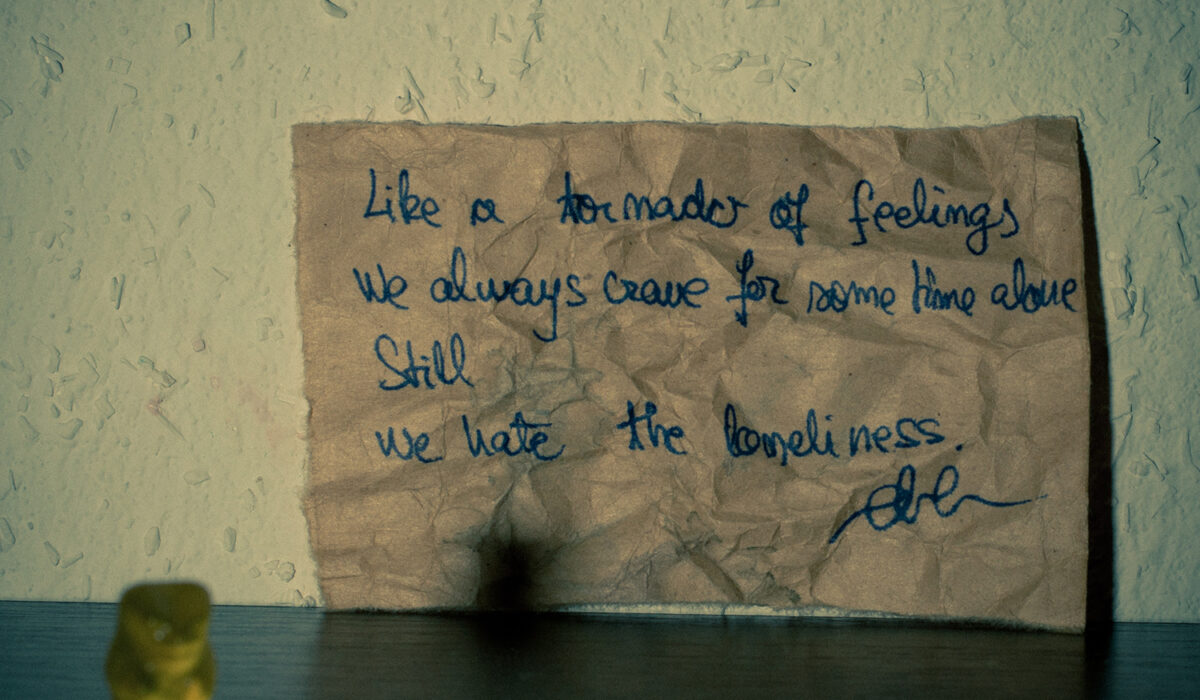 Like a tornado of feelings
we always crave for some time alone
Still
we hate the loneliness.